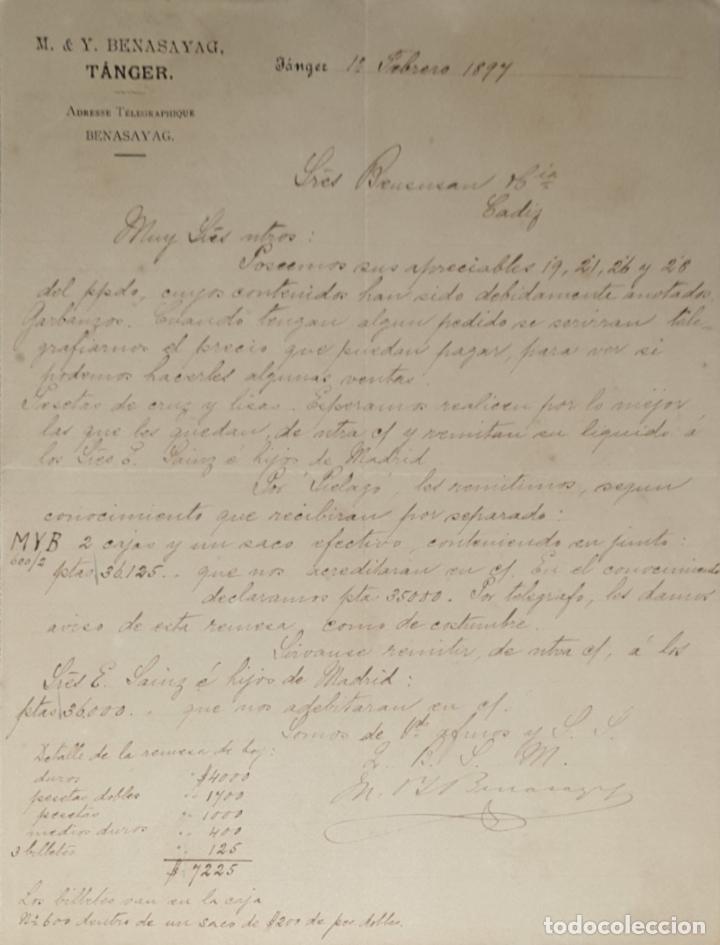 M. & Y. BENASAYAG,
TÁNGER.
ADRESSE TÉLÉGRAPHIQUE
BENASAYAG.
Tánger 1º Febrero 1897
Srēs Bensusan & Cia
Cadiz
Muy Srēs ntros:
Poseemos sus apreciables 19, 21, 26 y 28
del ppdo, cuyos contenidos han sido debidamente anotados.
Garbanzos. Cuando tengan algun pedido se serviran tele-
grafiarnos el precio que puedan pagar, para ver si
podemos hacerles algunas ventas.
Pesetas de cruz y lisas. Esperamos realicen por lo mejor
las que les quedan, de ntra c/ y remitan su liquido á
los Srēs E. Sainz é hijos de Madrid
Por Pielago, les remitimos, segun
conocimiento que recibiran por separado:
MYB 2 cajas y un saco efectivo, conteniendo en junto:
600/2
ptas 36.125.. que nos acreditaran en c/. En el conocimiento
declaramos pta 35000. Por telégrafo, les damos
aviso de esta remesa, como de costumbre.
Sirvanse remitir, de ntra c/, á los
Srēs E. Sainz é hijos de Madrid:
ptas 36.000.. que nos adebitaran en c/.
Somos de Vds afmos y S. S.
Q. B. S. M.
M. & Y Benasayag
Detalle de la remesa de hoy:
duros " $4000
pesetas dobles " 1700
pesetas " 1000
medios duros " 400
3 billetes " 125
$ 7225
Los billetes van en la caja
Nº 600 dentro de un saco de $200 de pes. dobles.
todocoleccion